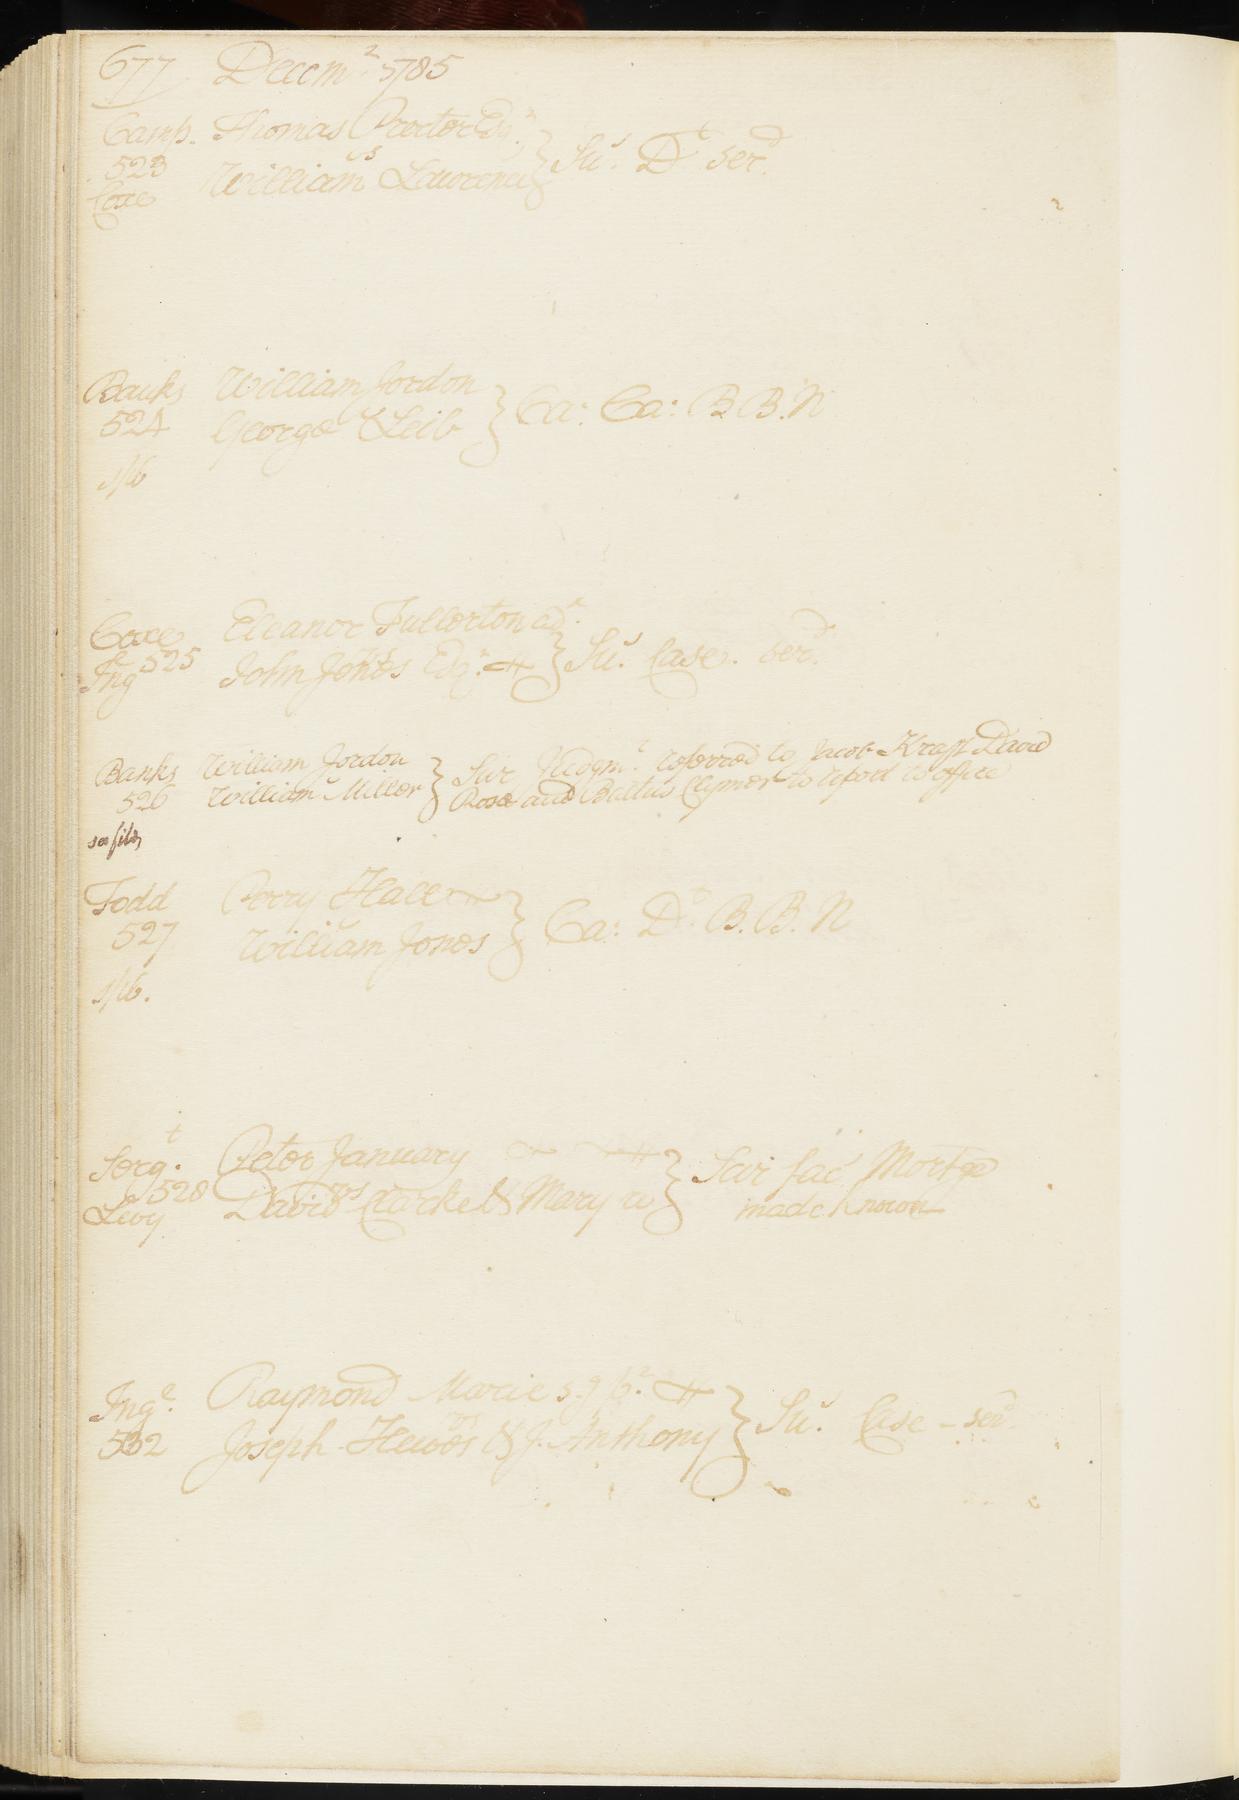 677 Decem.r 1785
Camp. Thomas Proctor Esq.r
523 vs } Su.s D.t ser.d
Coxe William Lawrence
Banks William Jordon
524 George Leib } Ca: Ca: B B. N
Coxe Eleanor Fullerton ad.x
525 vs } Su.s Case. ser.d
Ing John Jones Esq.r
Banks William Jordon
526 William Miller } Sur Judgm.t referred to Jacob Kraft David
Rose and Battus Clymer to report to office
see file
Todd Perry Hall
527 William Jones } Ca: D.t B. B. N
Serg.t Peter January
528 vs } Sci fac Mortge
Levy David Clarke & Mary w made known
Ing.e Raymond Marie
532 vs } Su.s Case - ser.d
Joseph Hewes & J. Anthony